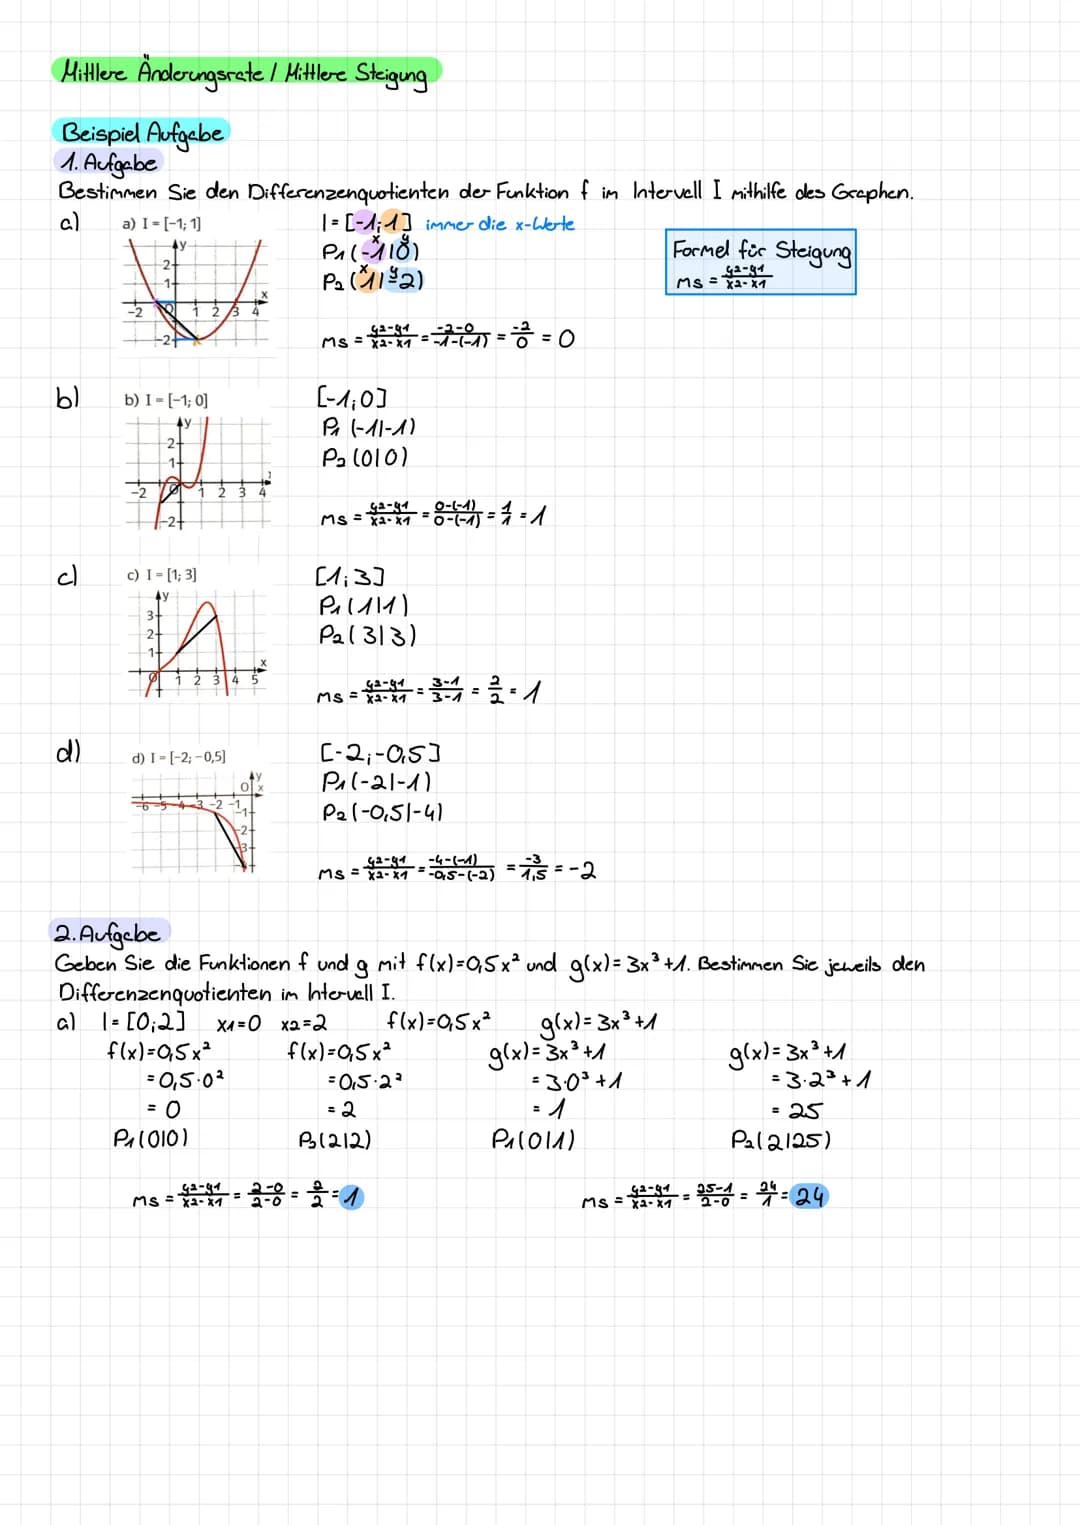 Mittlere Änderungsrate / Mittlere Steigung
Beispiel Aufgabe
1. Aufgabe
Bestimmen Sie den Differenzenquotienten der Funktion f im Intervell I mithilfe des Graphen.
a) a) I = [-1; 1] I = [-1; 1] immer die x-Werte
P1 (-1|0)
P2 (1|-2)
Formel für Steigung
ms = y2-y1 / x2-x1
ms = y2-y1 / x2-x1 = -2-0 / -1-(-1) = -2/0 = 0
b) b) I = [-1; 0] [-1;0]
P1 (-1|-1)
P2 (0|0)
ms = y2-y1 / x2-x1 = 0-(-1) / 0-(-1) = 1/1 = 1
c) c) I = [1; 3] [1;3]
P1 (1|1)
P2 (3|3)
ms = y2-y1 / x2-x1 = 3-1 / 3-1 = 2/2 = 1
d) d) I = [-2; -0,5] [-2;-0,5]
P1 (-2|-1)
P2 (-0,5|-4)
ms = y2-y1 / x2-x1 = -4-(-1) / -0,5-(-2) = -3/1,5 = -2
2. Aufgabe
Geben Sie die Funktionen f und g mit f(x)=0,5x² und g(x)= 3x³+1. Bestimmen Sie jeweils den
Differenzenquotienten im Intervall I.
a) I = [0;2] x1=0 x2=2 f(x)=0,5x² g(x)= 3x³+1
f(x)=0,5x² f(x)=0,5x² g(x)= 3x³+1 g(x)= 3x³+1
=0,5·0² =0,5·2² = 3·0³+1 = 3·2³+1
= 0 = 2 = 1 = 25
P1(0|0) P2(2|2) P1(0|1) P2(2|25)
ms = y2-y1 / x2-x1 = 2-0 / 2-0 = 2/2 = 1 ms = y2-y1 / x2-x1 = 25-1 / 2-0 = 24/1 = 24